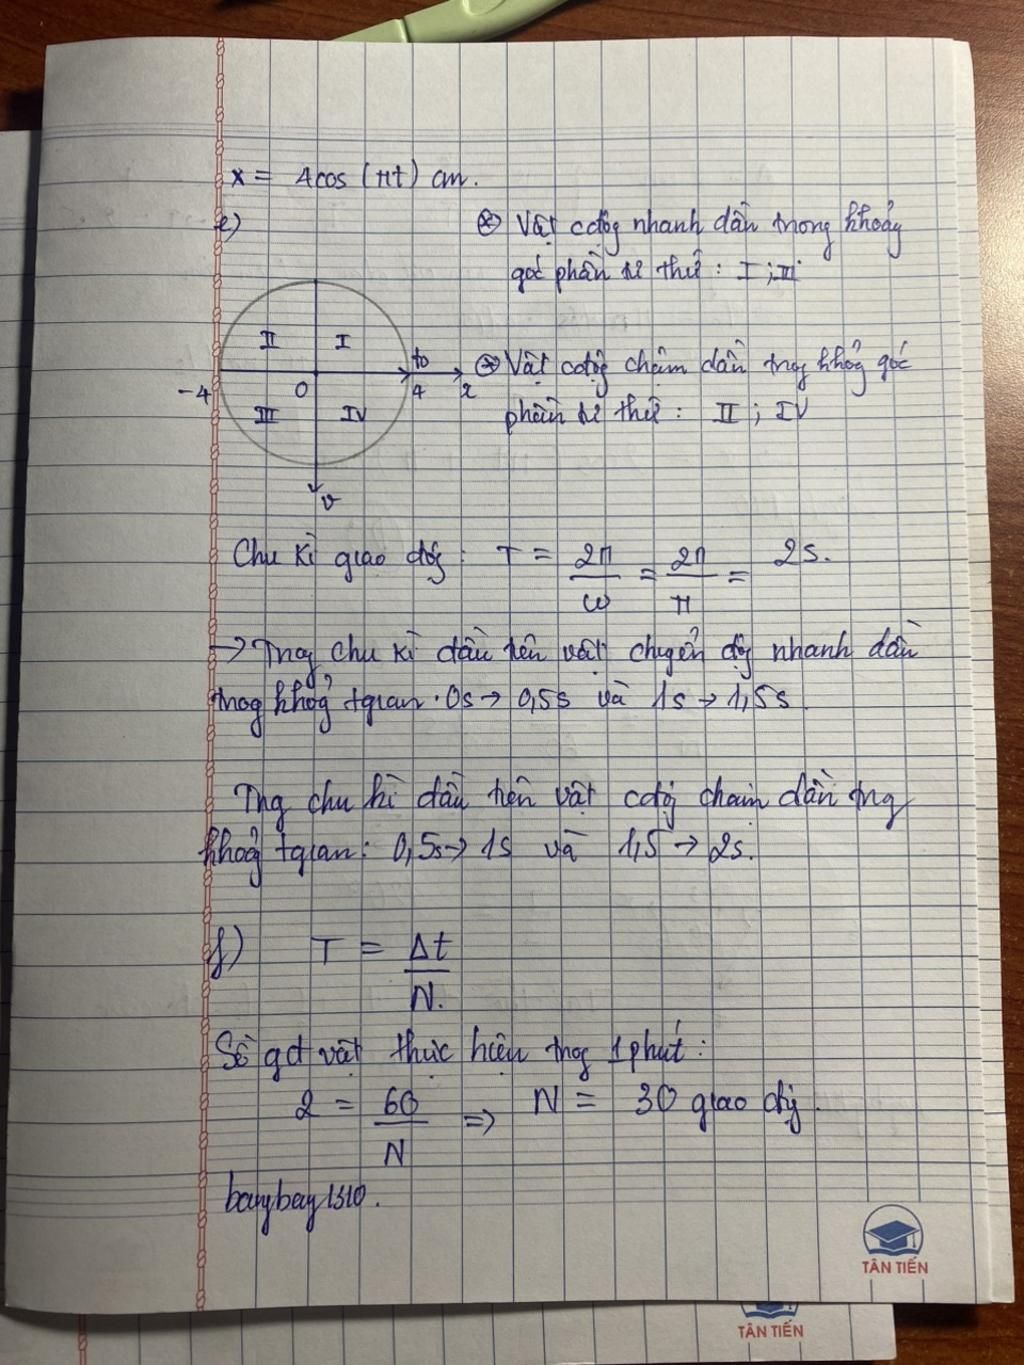 x = 4cos (πt) cm.
e)
⊛ Vật cđộg nhanh dần trong khoảg
góc phần tư thứ : I ; III
II I
to
-4 O 4 x
III IV
v
⊛ Vật cđộg chậm dần trog khoảg góc
phần tư thứ : II ; IV
Chu kì giao độg : T = 2π/ω = 2π/π = 2s.
→ Trog chu kì đầu tiên vật chuyển độg nhanh dần
trog khoảg tgian : 0s → 0,5s và 1s → 1,5s.
Trg chu kì đầu tiên vật cđộg chậm dần trg
khoảg tgian : 0,5s → 1s và 1,5 → 2s.
f) T = Δt/N.
Số gđ vật thực hiện trog 1 phút :
2 = 60/N => N = 30 giao độg.
baybay1310.
TÂN TIẾN
TÂN TIẾN